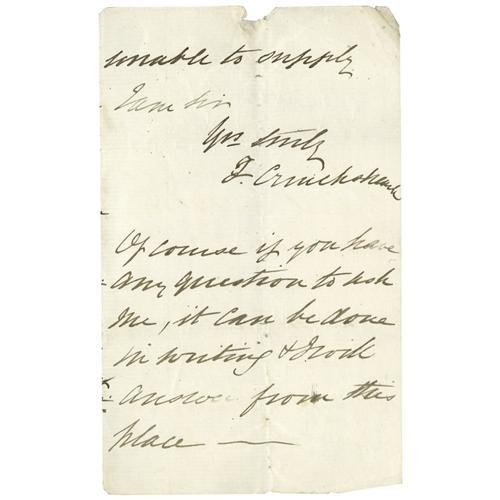 unable to supply
I am Sir
Yrs truly
F. Cruickshank
Of course if you have
any question to ask
me, it can be done
in writing & I will
answer from this
place —